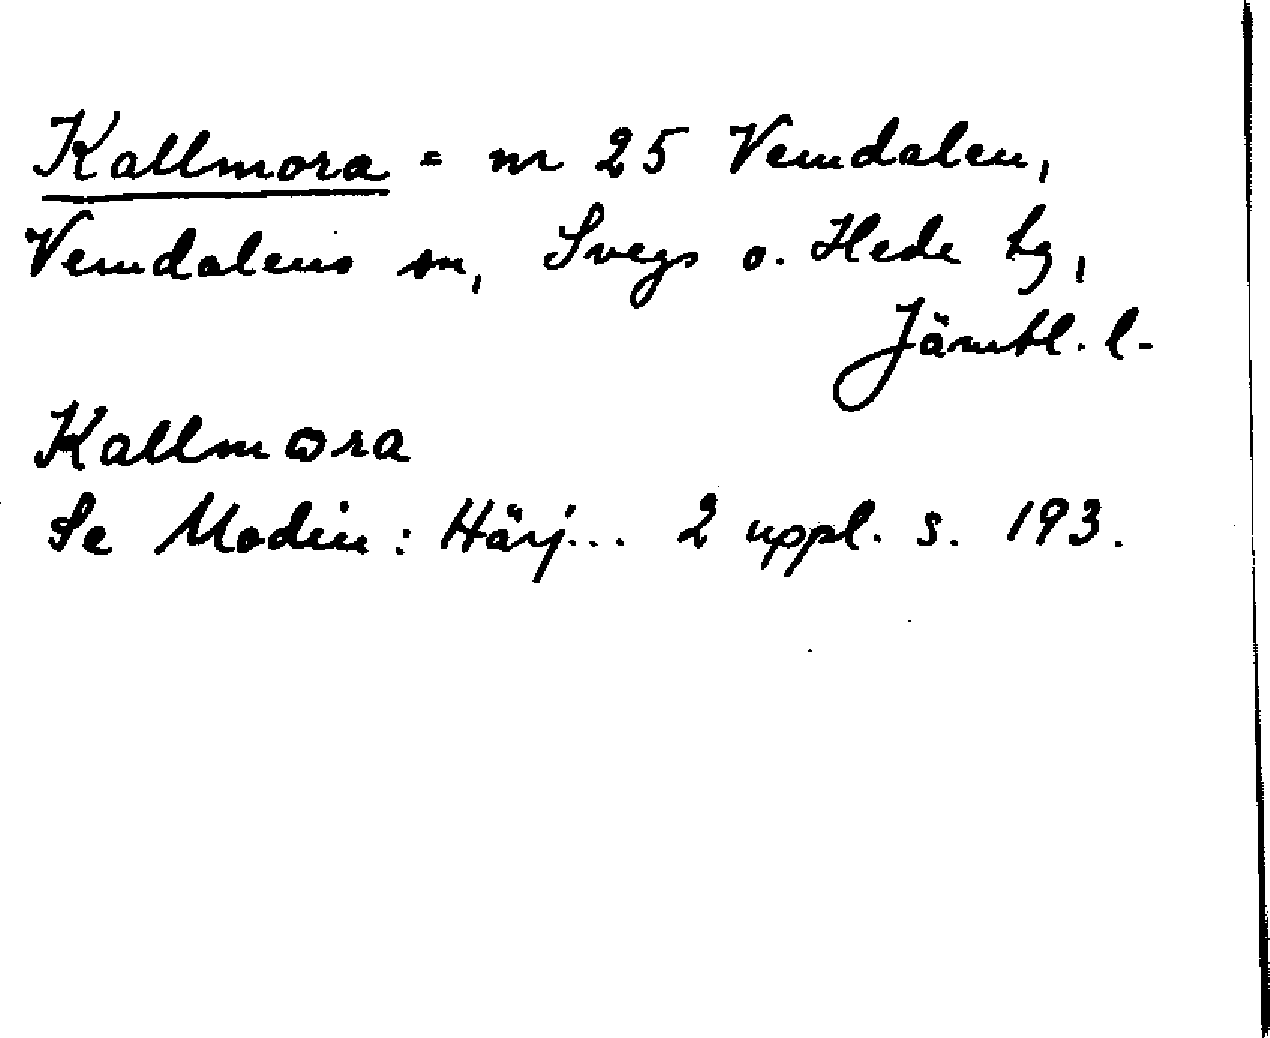 Kallmora = nr 25 Vemdalen,
Vemdalens sn, Svegs o. Hede tg,
Jämtl. l.
Kallmora
Se Modin: Härj... 2 uppl. s. 193.